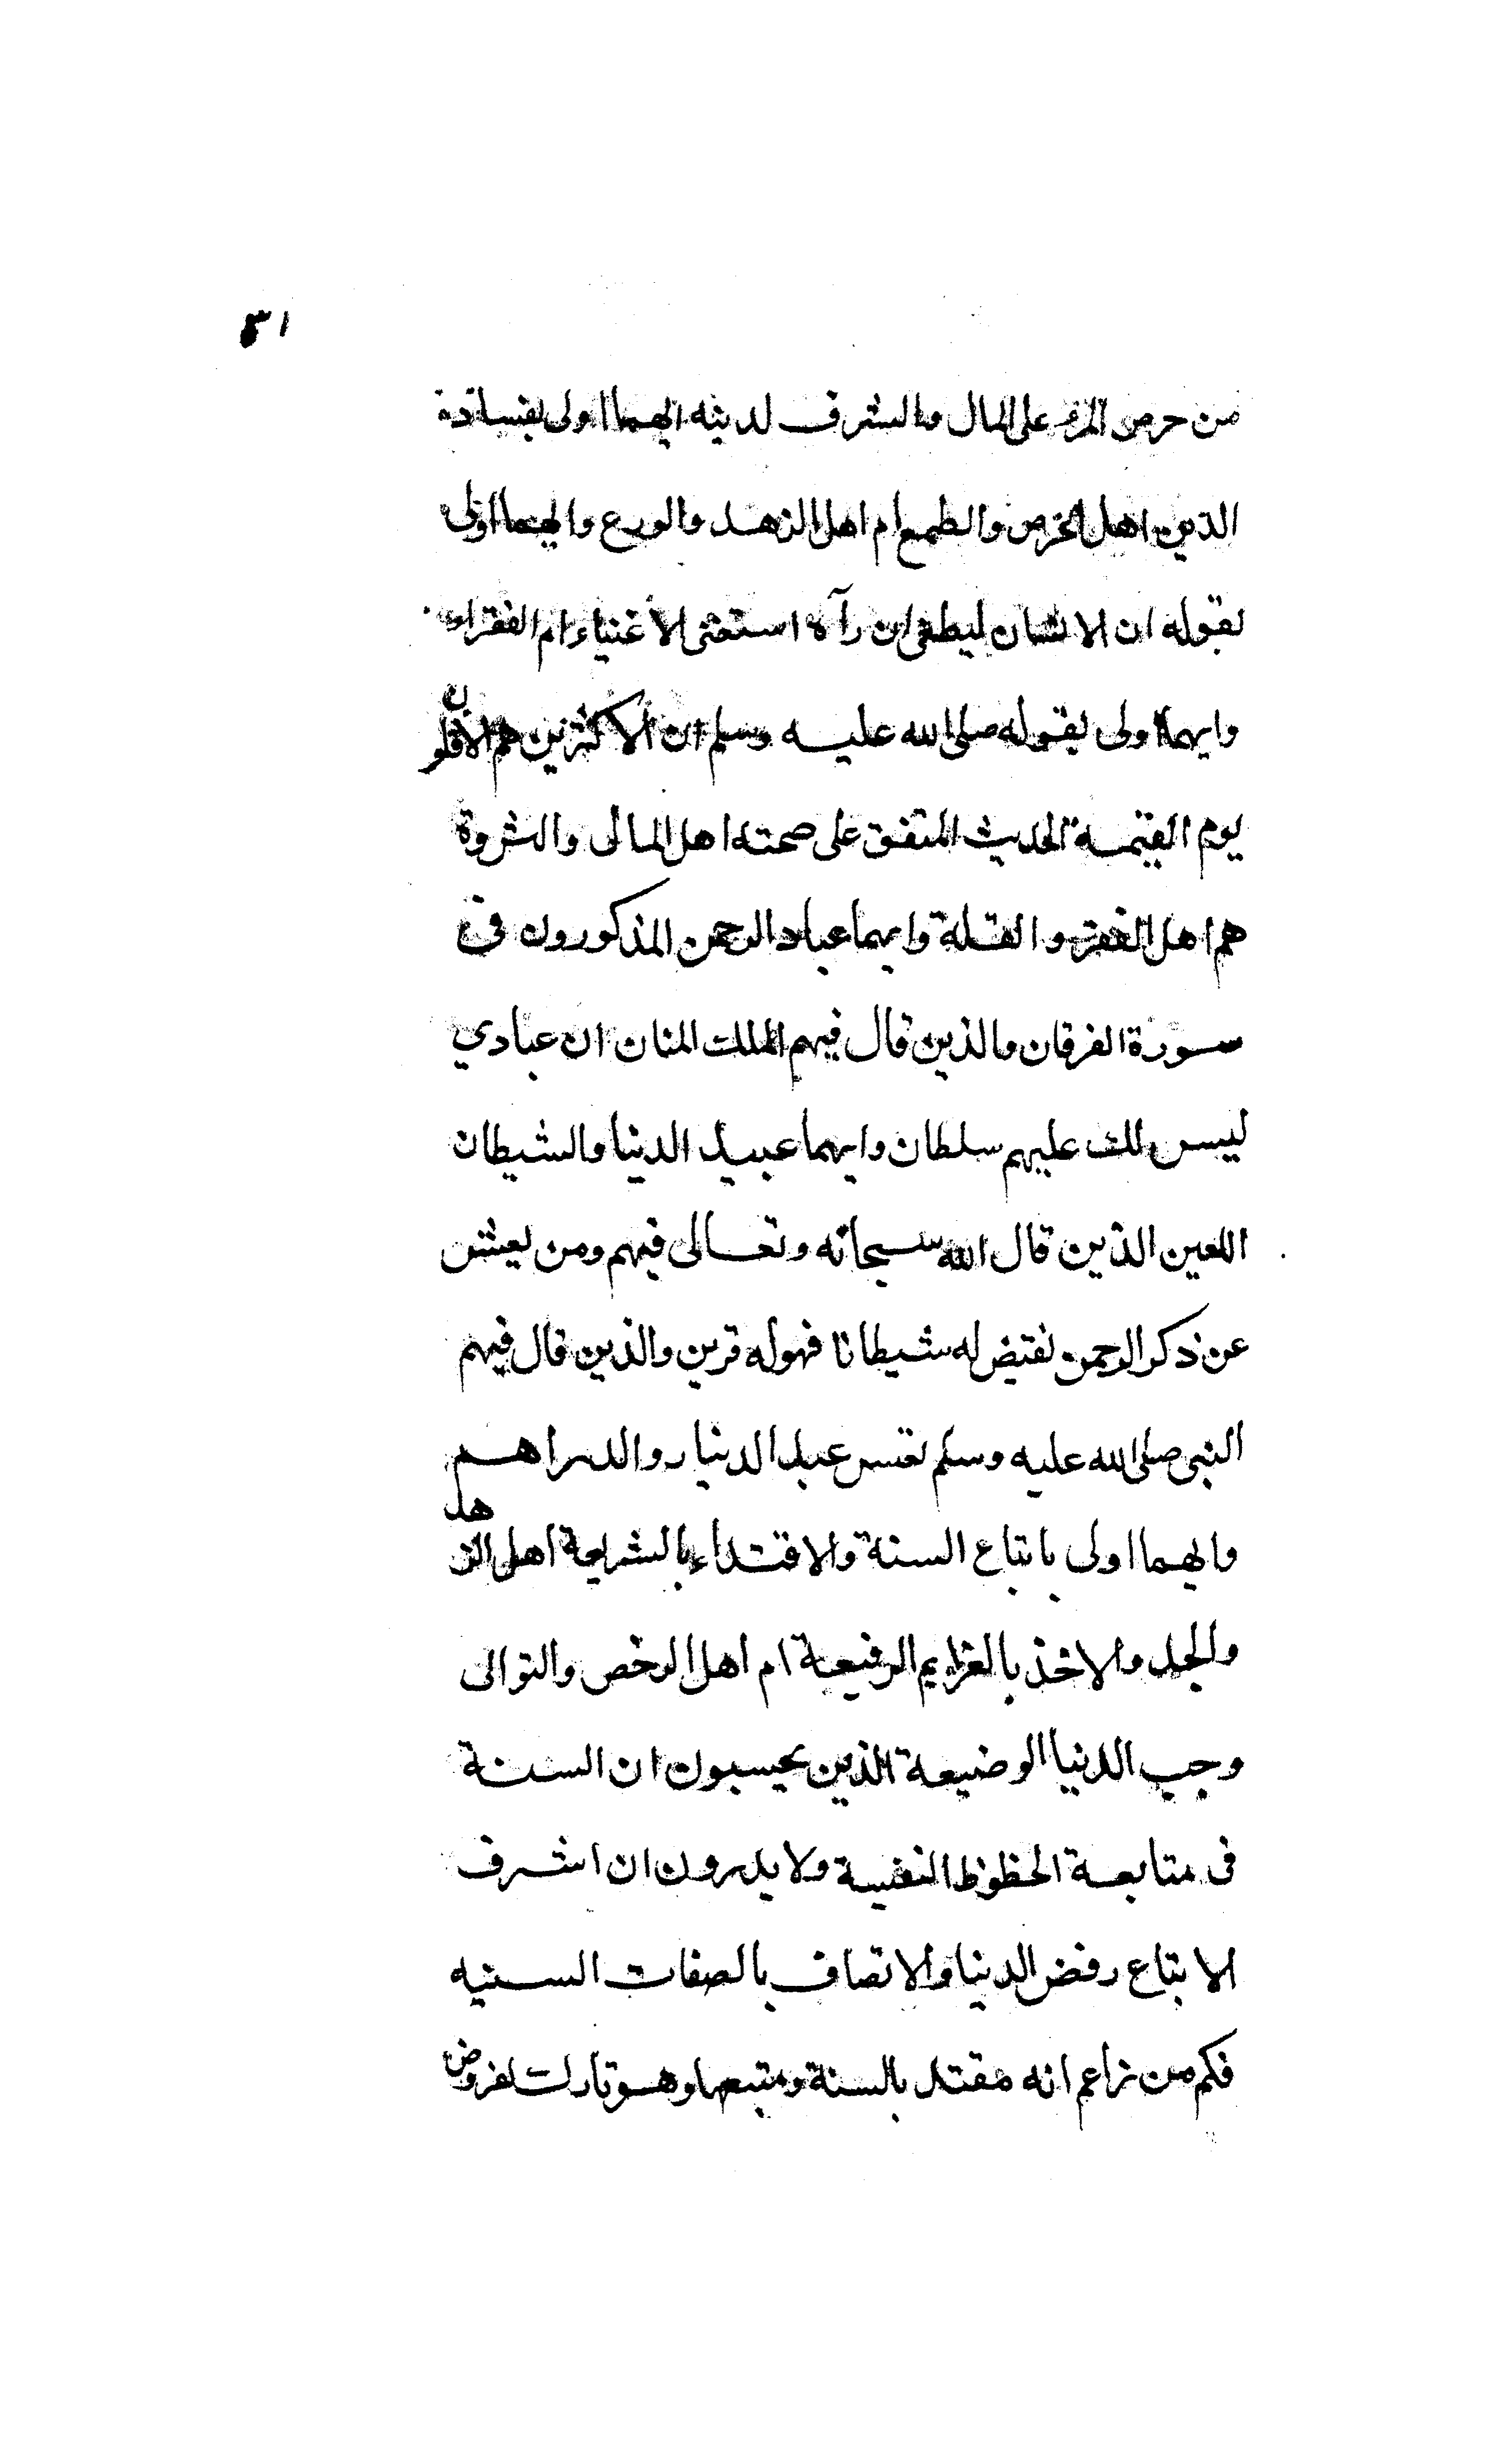 ٣١
من حرص المرء على المال والشرف لدينه ايهما اولى بفساده
الدين اهل الحرص والطمع ام اهل الزهد والورع وايهما اولى
بقوله ان الانسان ليطغى ان رآه استغنى الاغنياء ام الفقراء
وايهما اولى بقوله صلى الله عليه وسلم ان الاكثرين هم الاقلون
يوم القيمة الحديث المتفق على صحته اهل المال والثروة
هم اهل الفقر والقلة وايهما عباد الرحمن المذكورون في
سورة الفرقان والذين قال فيهم الملك المنان ان عبادي
ليس لك عليهم سلطان وايهما عبيد الدنيا والشيطان
اللعين الذين قال الله سبحانه وتعالى فيهم ومن يعش
عن ذكر الرحمن نقيض له شيطانا فهوله قرين والذين قال فيهم
النبي صلى الله عليه وسلم تعس عبد الدنيار والدراهم
وايهما اولى باتباع السنة والاقتداء بالشريعة اهل الزهد
والجد والاخذ بالعزايم الرفيعة ام اهل الرخص والتوالى
وحب الدنيا الوضيعة الذين يحسبون ان السنة
في متابعة الحظوظ النفيسة ولا يدرون ان اشرف
الاتباع رفض الدنيا والاتصاف بالصفات السنيه
فكم من زاعم انه مقتد بالسنة ومتبعها وهو تارك لفروض